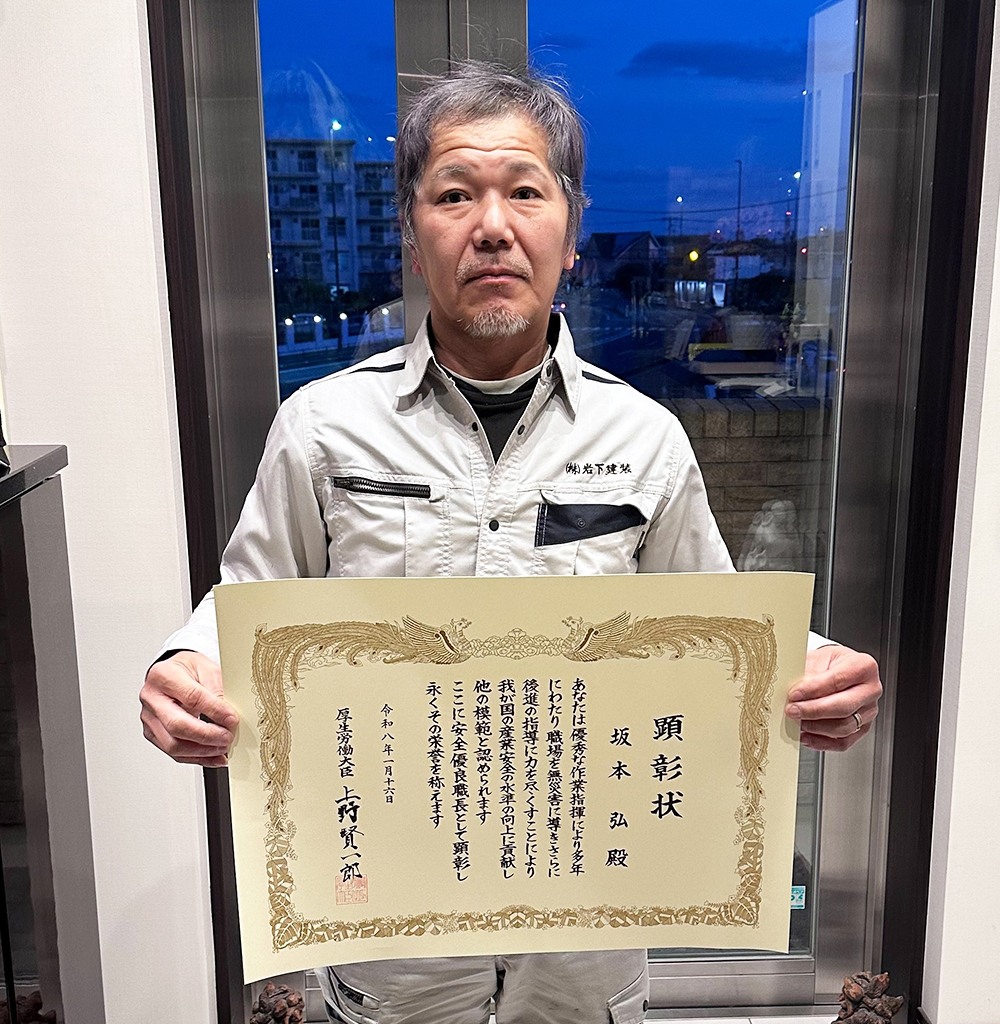 ㈱岩下建装
顕彰状
坂本 弘 殿
あなたは優秀な作業指揮により多年
にわたり職場を無災害に導きさらに
後進の指導に力を尽くすことにより
我が国の産業安全の水準の向上に貢献し
他の模範と認められます
ここに安全優良職長として顕彰し
永くその栄誉を称えます
令和八年一月十六日
厚生労働大臣 上野賢一郎